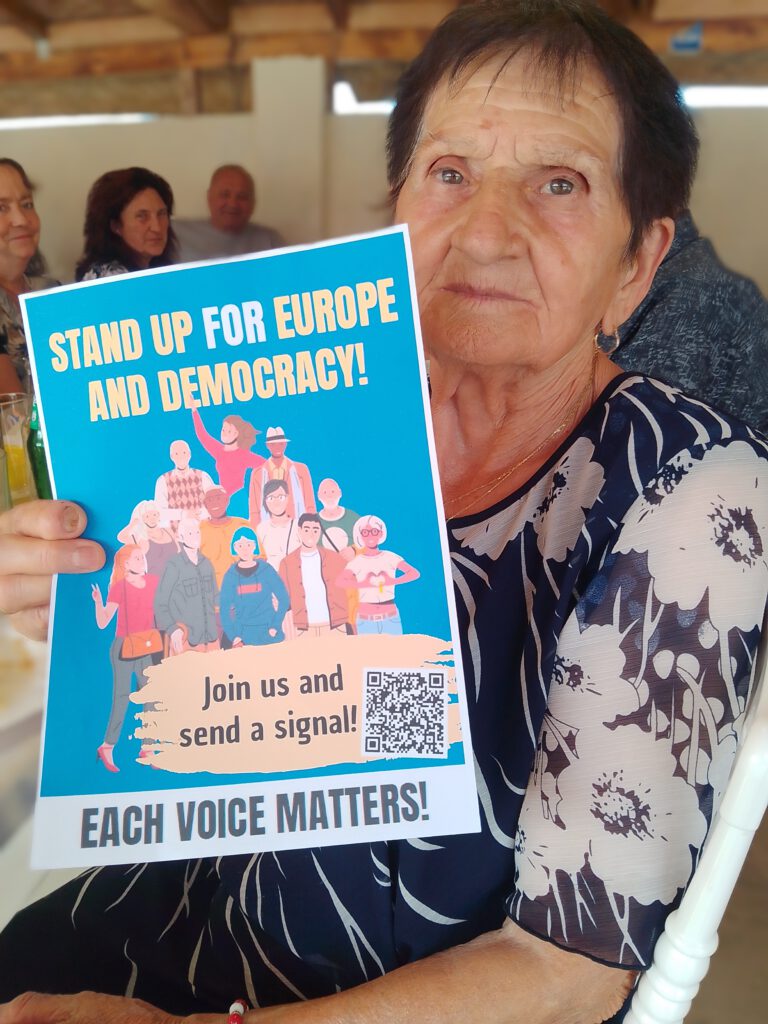 STAND UP FOR EUROPE
AND DEMOCRACY!
Join us and
send a signal!
EACH VOICE MATTERS!